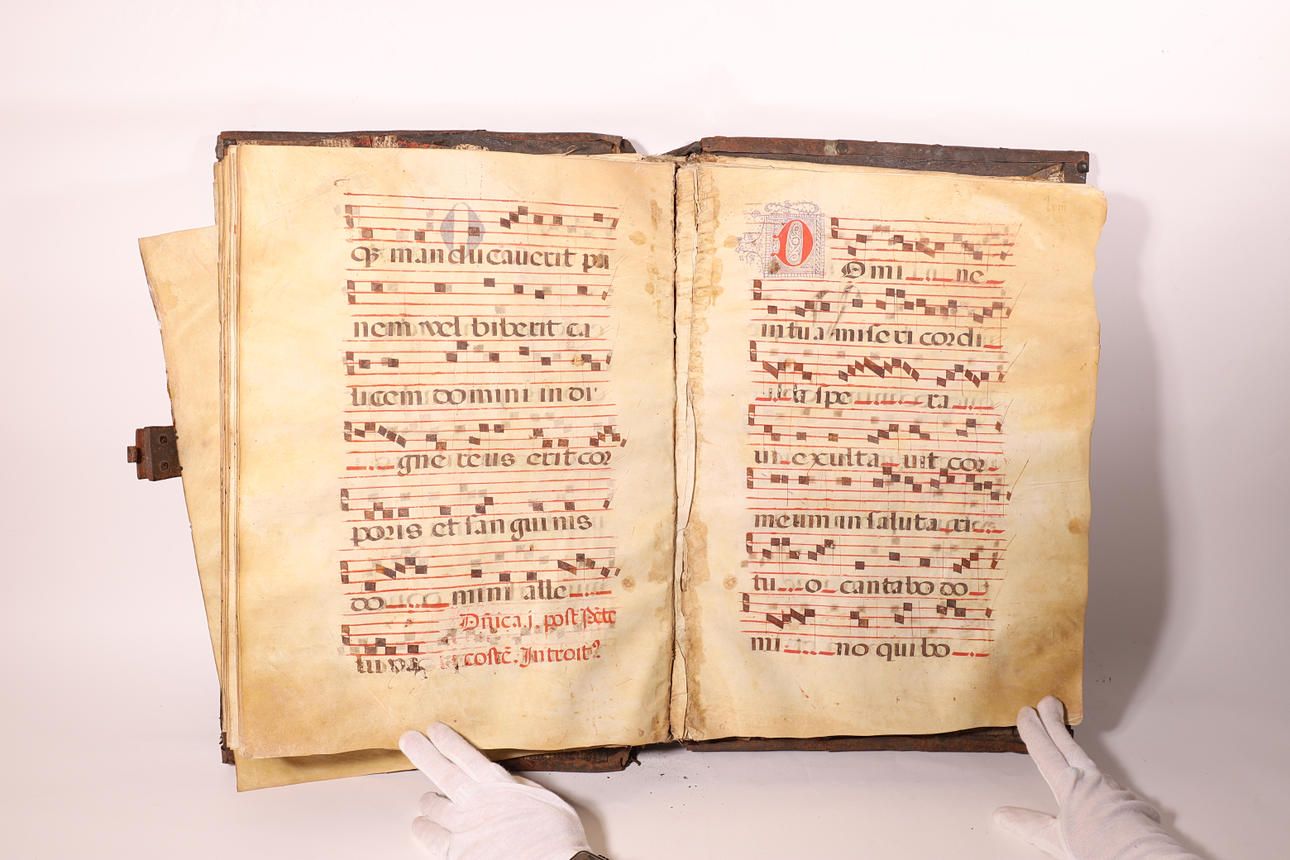 q̃ manducauerit pa
nem vel biberit ca
licem domini indi
gne reus erit cor
poris et sanguinis
do mini alle
Dñica.j. post Pẽte
lu ya costẽ. Introit⁹
Domi ne
in tua miseri cordi
a spe ra
ui exulta uit cor
meum in saluta ri
tu o cantabo do
mi no qui bo